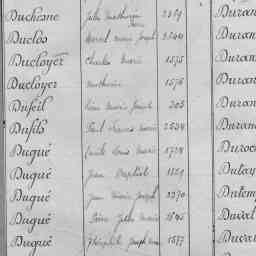 Duchesne Jules Mathurin 2359 Duran
Duclos Marcel Marie Joseph 2540 Duran
Ducloyer Charles Marie 1575 Duran
Ducloyer Mathurin 1576 Duran
Dufeil Marie Joseph 205 Duran
Dufils Paul Francis Marie 2534 Duran
Dugué Emile Louis Marie 1724 Duroc
Dugué Jean Baptiste Dutay
Dugué Jean Marie Joseph 2270 Dutem
Dugué Pierre Jules Marie 1645 Duval
Dugué Théophile Joseph Marie 1577 Duval